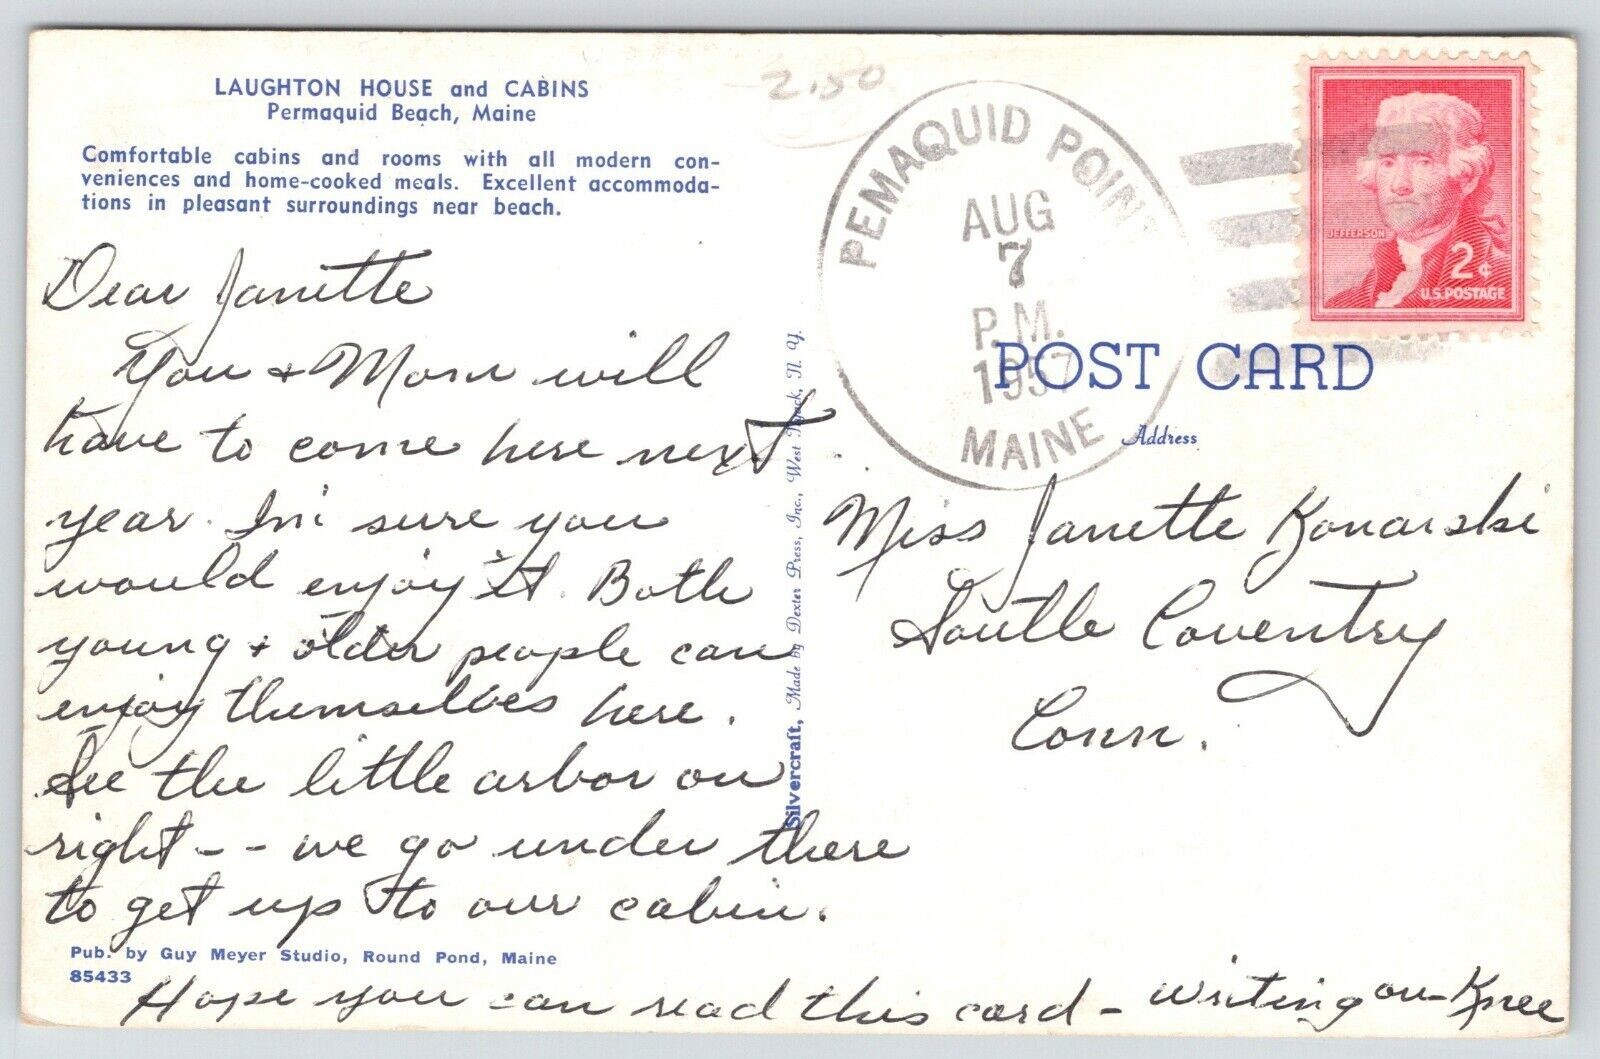 LAUGHTON HOUSE and CABINS
Permaquid Beach, Maine
Comfortable cabins and rooms with all modern con-
veniences and home-cooked meals. Excellent accommoda-
tions in pleasant surroundings near beach.
Dear Janette
You + Mom will
have to come here next
year. I'm sure you
would enjoy it. Both
young + older people can
enjoy themselves here.
See the little arbor on
right -- we go under there
to get up to our cabin.
Pub. by Guy Meyer Studio, Round Pond, Maine
85433
Hope you can read this card - writing on - Knee
Silvercraft, Made by Dexter Press, Inc., West Nyack, N. Y.
2.50
PEMAQUID POINT
AUG
7
P.M.
1957
MAINE
JEFFERSON
2¢
U.S. POSTAGE
POST CARD
Address
Miss Janette Konarski
South Coventry
Conn.